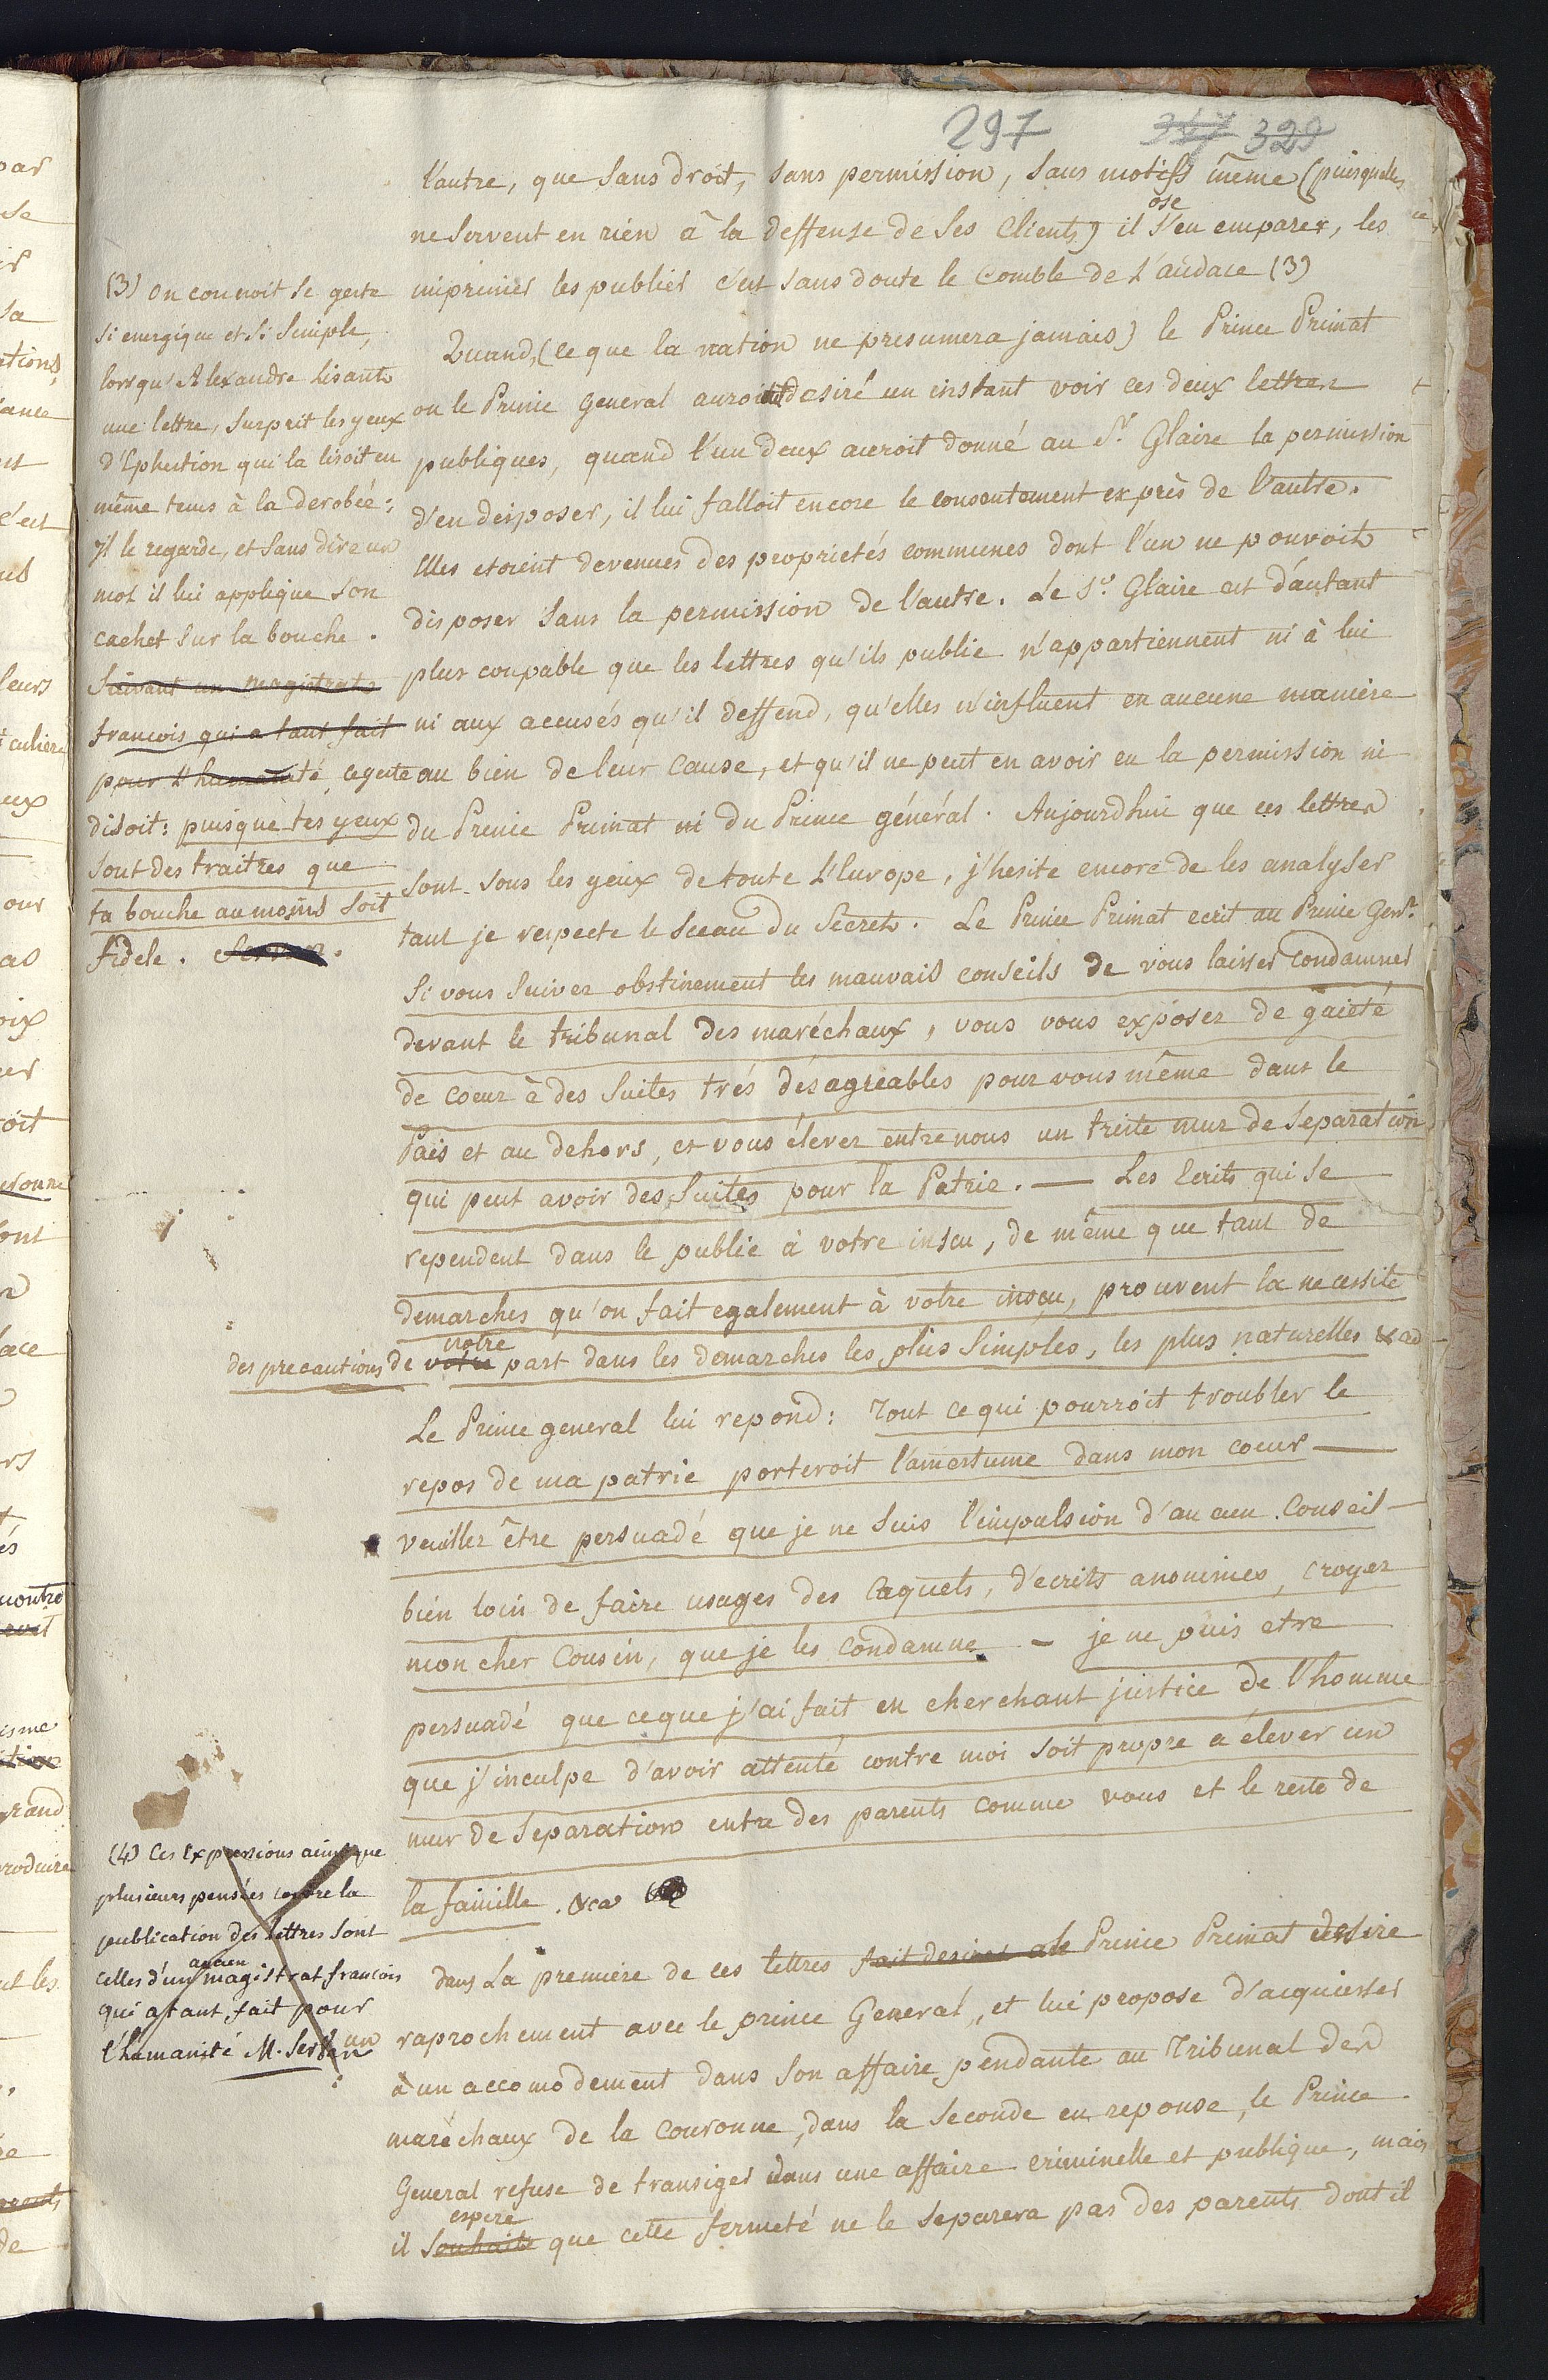 297 347 329
l'autre, que sans droit, sans permission, sans motifs même (puisqu'elles
ne servent en rien à la deffense de ses Clients) il ose s'en emparer, les
imprimer les publier c'est sans doute le Comble de l'audace (3)
Quand, (ce que la nation ne presumera jamais) le Prince Primat
ou le Prince General auroit desiré un instant voir ces deux lettres
publiques, quand l'un deux auroit donné au Sr. Glaire la permission
d'en desposer, il lui falloit encore le consentement exprès de l'autre.
Elles etoient devenues des proprietés communes dont l'un ne pouvoit
disposer sans la permission de l'autre. Le Sr. Glaire est d'autant
plus coupable que les lettres qu'ils publie n'appartiennent ni à lui
ni aux accusés qu'il deffend, qu'elles n'influent en aucune maniere
au bien de leur Cause, et qu'il ne peut en avoir eu la permission ni
du Prince Primat ni du Prince général. Aujourdhui que ces lettres
sont sous les yeux de toute L'Europe, j'hesite encore de les analyser
tant je respecte le sceau du Secret. Le Prince Primat ecrit au Prince Genl.
Si vous suivez obstinement les mauvais conseils de vous laisser Condamner
devant le tribunal des maréchaux, vous vous exposez de gaieté
de coeur à des suites trés désagreables pour vous même dans le
Païs et au dehors, et vous élevez entre nous un triste mur de Separation
qui peut avoir des Suites pour la Patrie. — Les Ecrits qui se
rependent dans le public à votre insçu, de même que tant de
demarches qu'on fait egalement à votre insçu, prouvent la necessité
des precautions de votre notre part dans les demarches les plus Simples, les plus naturelles &ca
Le Prince general lui repond: Tout ce qui pourroit troubler le
repos de ma patrie porteroit l'amertume dans mon coeur —
veuillez être persuadé que je ne suis l'impulsion d'aucun Conseil —
bien loin de faire usages des Caquets, d'ecrits anonimes, croyez
mon cher Cousin, que je les Condamne. - je ne puis etre
persuadé que ce que j'ai fait en cherchant justice de l'homme
que j'inculpe d'avoir attenté contre moi soit propre a élever un
mur de Separation entre des parents comme vous et le reste de
la famille. &ca
dans La premiere de ces lettres fait desirer a le Prince Primat desire
raprochement avec le prince General, et lui propose d'acquiesser
à un accomodement dans son affaire pendante au Tribunal des
maréchaux de la Couronne, dans la Seconde en reponse, le Prince
General refuse de transiger dans une affaire criminelle et publique, mais
il souhaite espere que cette fermeté ne le separera pas des parents dont il
(3) On connoit le geste
si energique et si Simple,
lorsqu'Alexandre lisant
une lettre, surprit les yeux
d'Ephestion qui la lisoit en
même tems à la derobée;
il le regarde, et sans dire un
mot il lui applique son
cachet sur la bouche.
Suivant un magistrat
francois qui a tant fait
pour l'humanité, ce geste
disoit: puisque tes yeux
sont des traitres que
ta bouche au moins soit
fidele. Servan.
(4) Ces Expressions ainsi que
plusieurs pensées contre la
publication des lettres sont
celles d'un ancien magistrat francois
qui a tant fait pour
l'humanité M. Servan